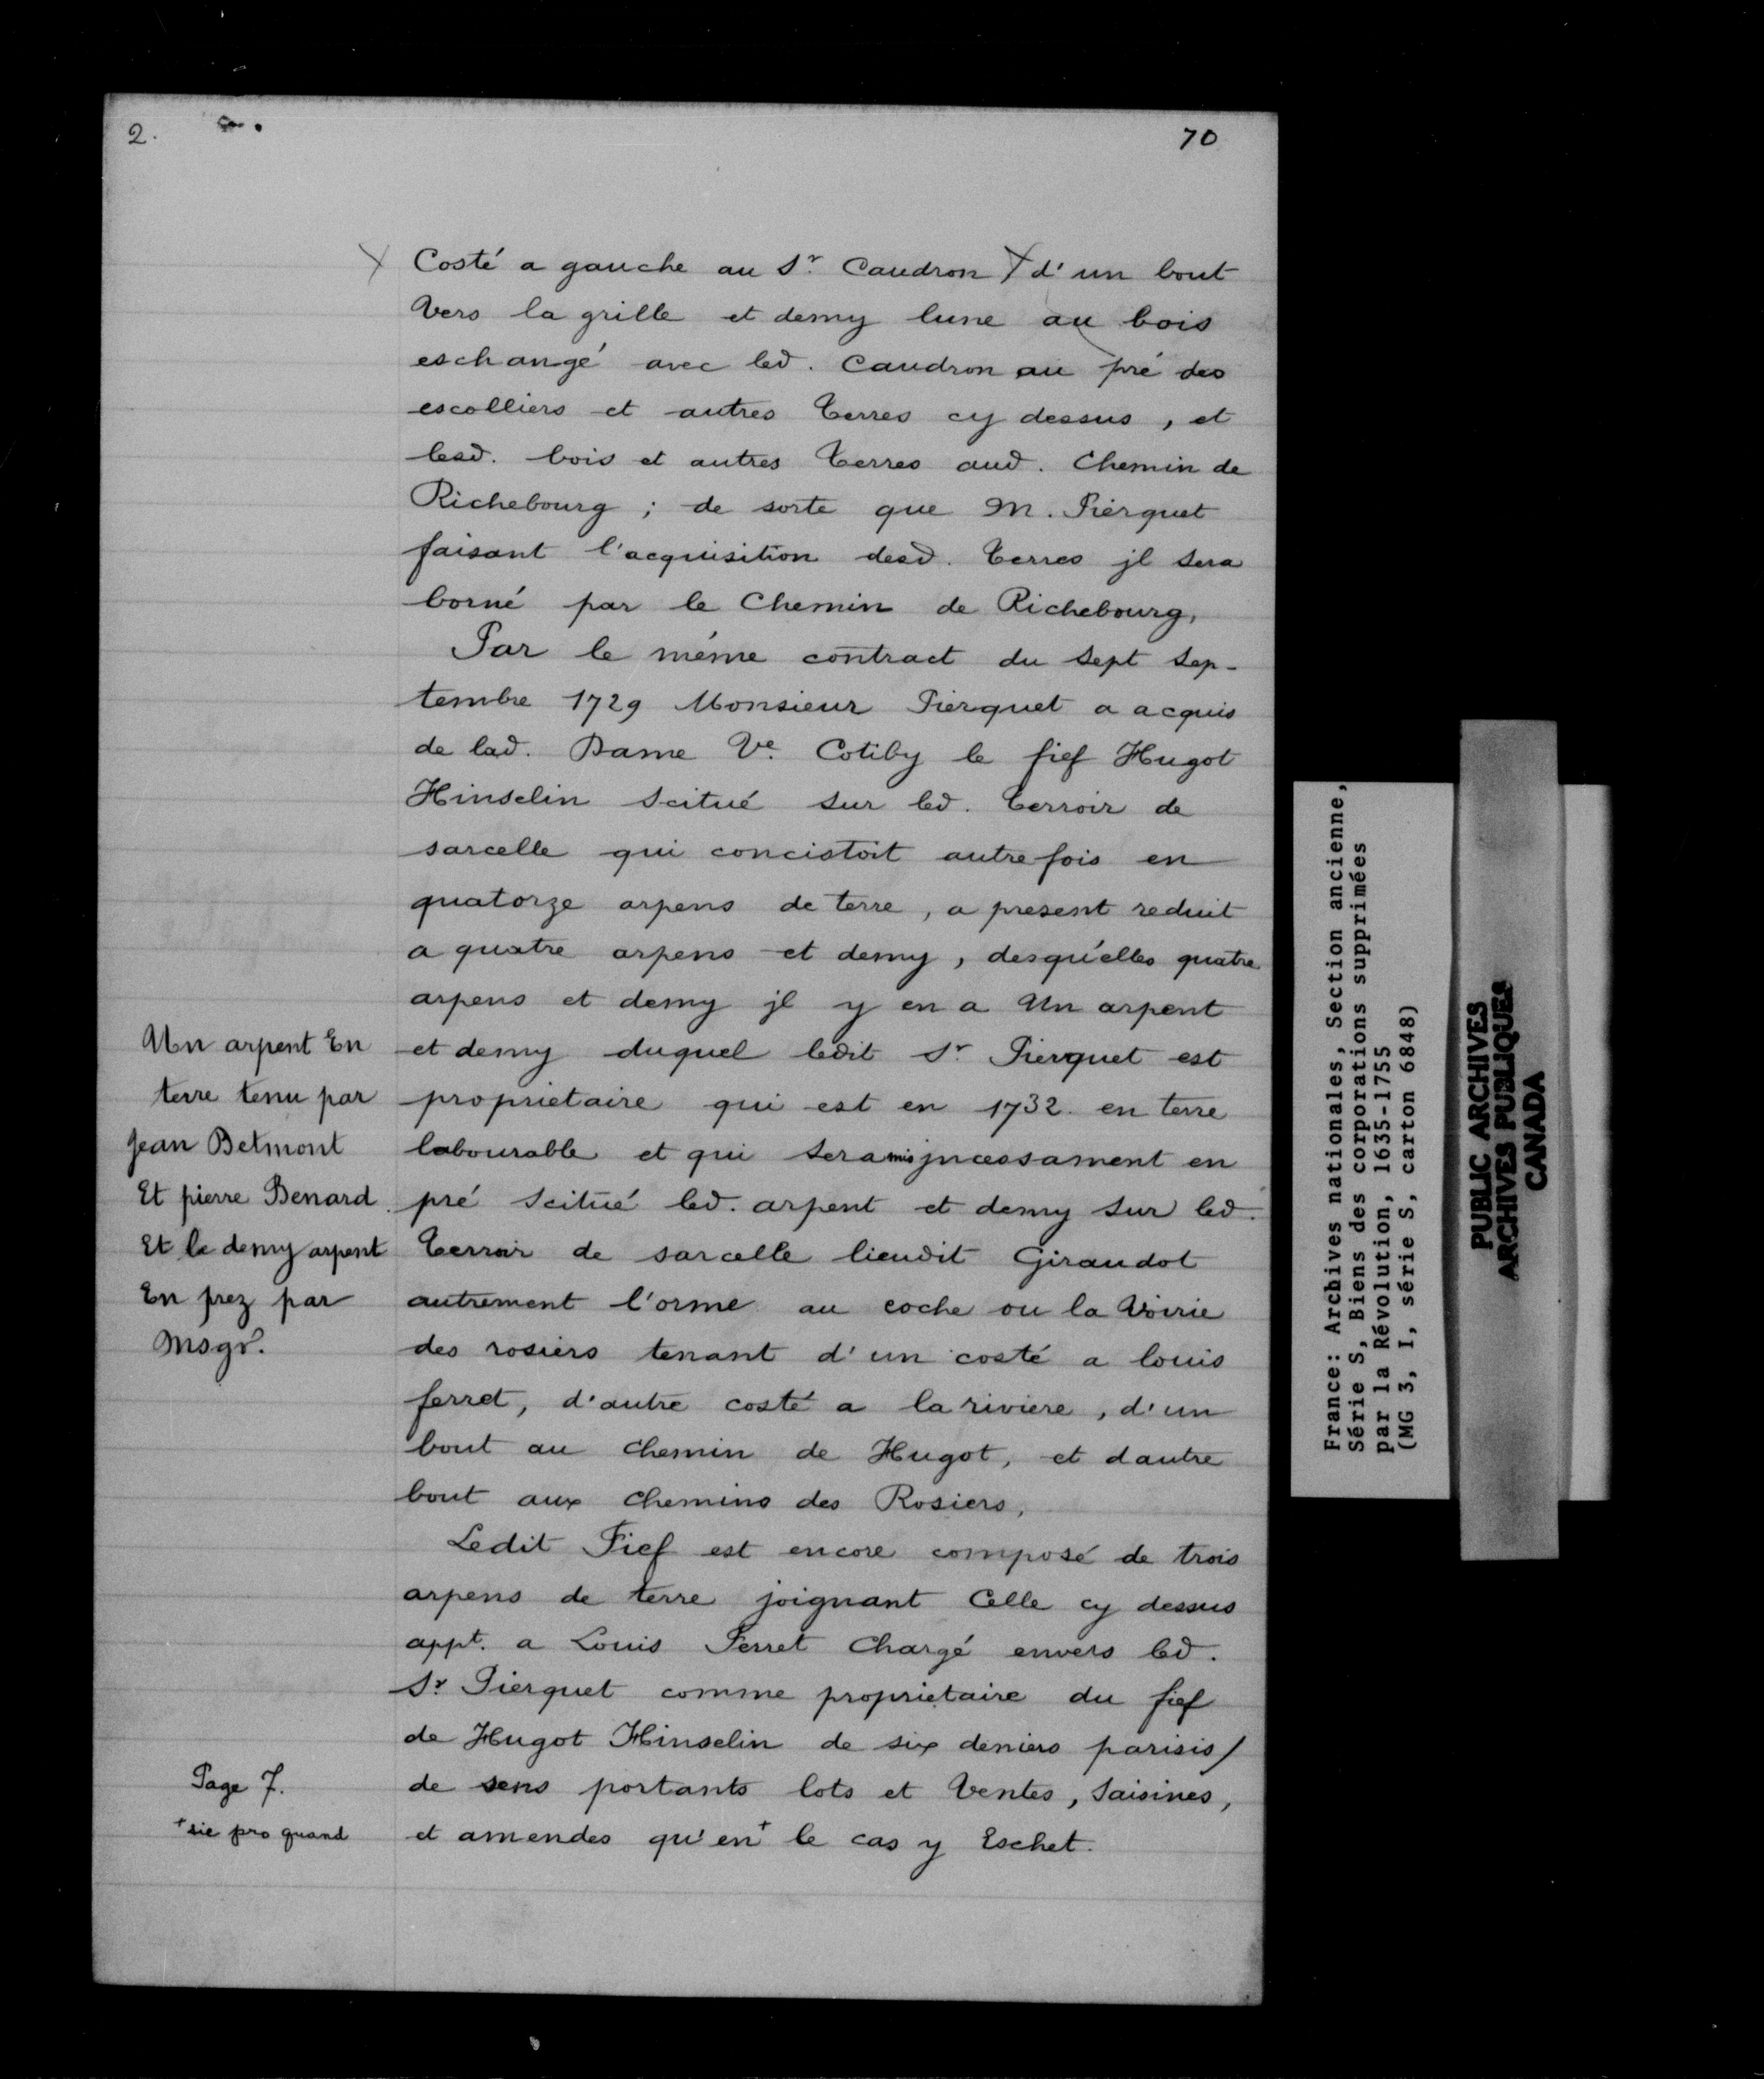 2.
70
Costé a gauche au Sr. Caudron X d'un bout
Vers la grille et demy lune au bois
eschangé avec led. Caudron au pré des
escolliers et autres Terres cy dessus, et
lesd. bois et autres Terres aud. Chemin de
Richebourg ; de sorte que M. Pierquet
faisant l'acquisition desd. Terres jl sera
borné par le Chemin de Richebourg,
Par le même contract du sept sep-
tembre 1729 Monsieur Pierquet a acquis
de lad. Dame Ve. Cotiby le fief Hugot
Hinselin scitué sur led. Terroir de
sarcelle qui concistoit autrefois en
quatorze arpens de terre, a present reduit
a quatre arpens et demy, desqu'elles quatre
arpens et demy jl y en a Un arpent
et demy duquel ledit Sr Pierquet est
proprietaire qui est en 1732 en terre
labourable et qui sera mis jncessament en
pré scitué led. arpent et demy sur led.
Terroir de sarcelle lieudit Giraudot
autrement l'orme au coche ou la Voirie
des rosiers tenant d'un costé a louis
ferret, d'autre costé a la riviere, d'un
bout au chemin de Hugot, et dautre
bout aux chemins des Rosiers,
Ledit Fief est encore composé de trois
arpens de terre joignant Celle cy dessus
appt. a Louis Ferret Chargé envers led.
Sr. Pierquet comme proprietaire du fief
de Hugot Hinselin de six deniers parisis/
de sens portants lots et Ventes, Saisines,
et amendes qu'en+ le cas y Eschet.
Un arpent En
terre tenu par
Jean Betmont
Et pierre Benard
Et le demy arpent
En prez par
Msgr.
Page 7.
+sic pro quand
France: Archives nationales, Section ancienne,
Série S, Biens des corporations supprimées
par la Révolution, 1635-1755
(MG 3, I, série S, carton 6848)
PUBLIC ARCHIVES
ARCHIVES PUBLIQUES
CANADA